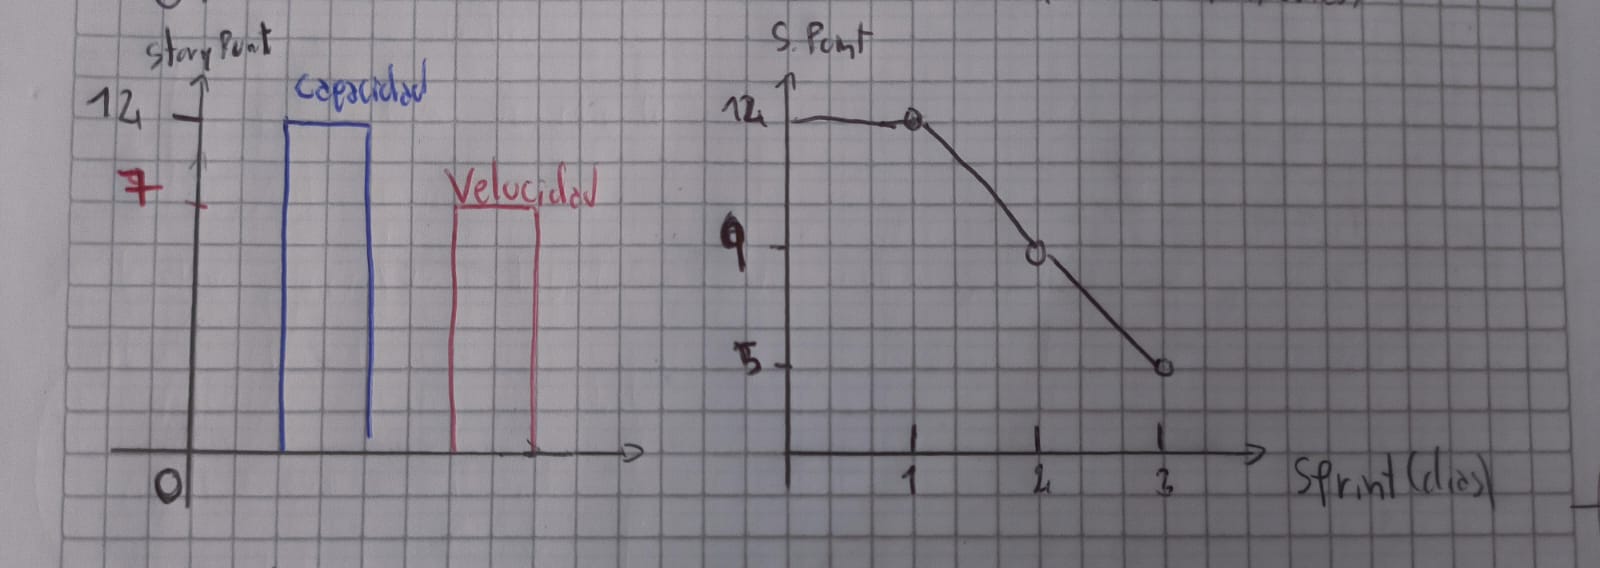 Story Point
12
Capacidad
7
Velocidad
0
S. Point
12
9
5
1
2
3
Sprint (dias)